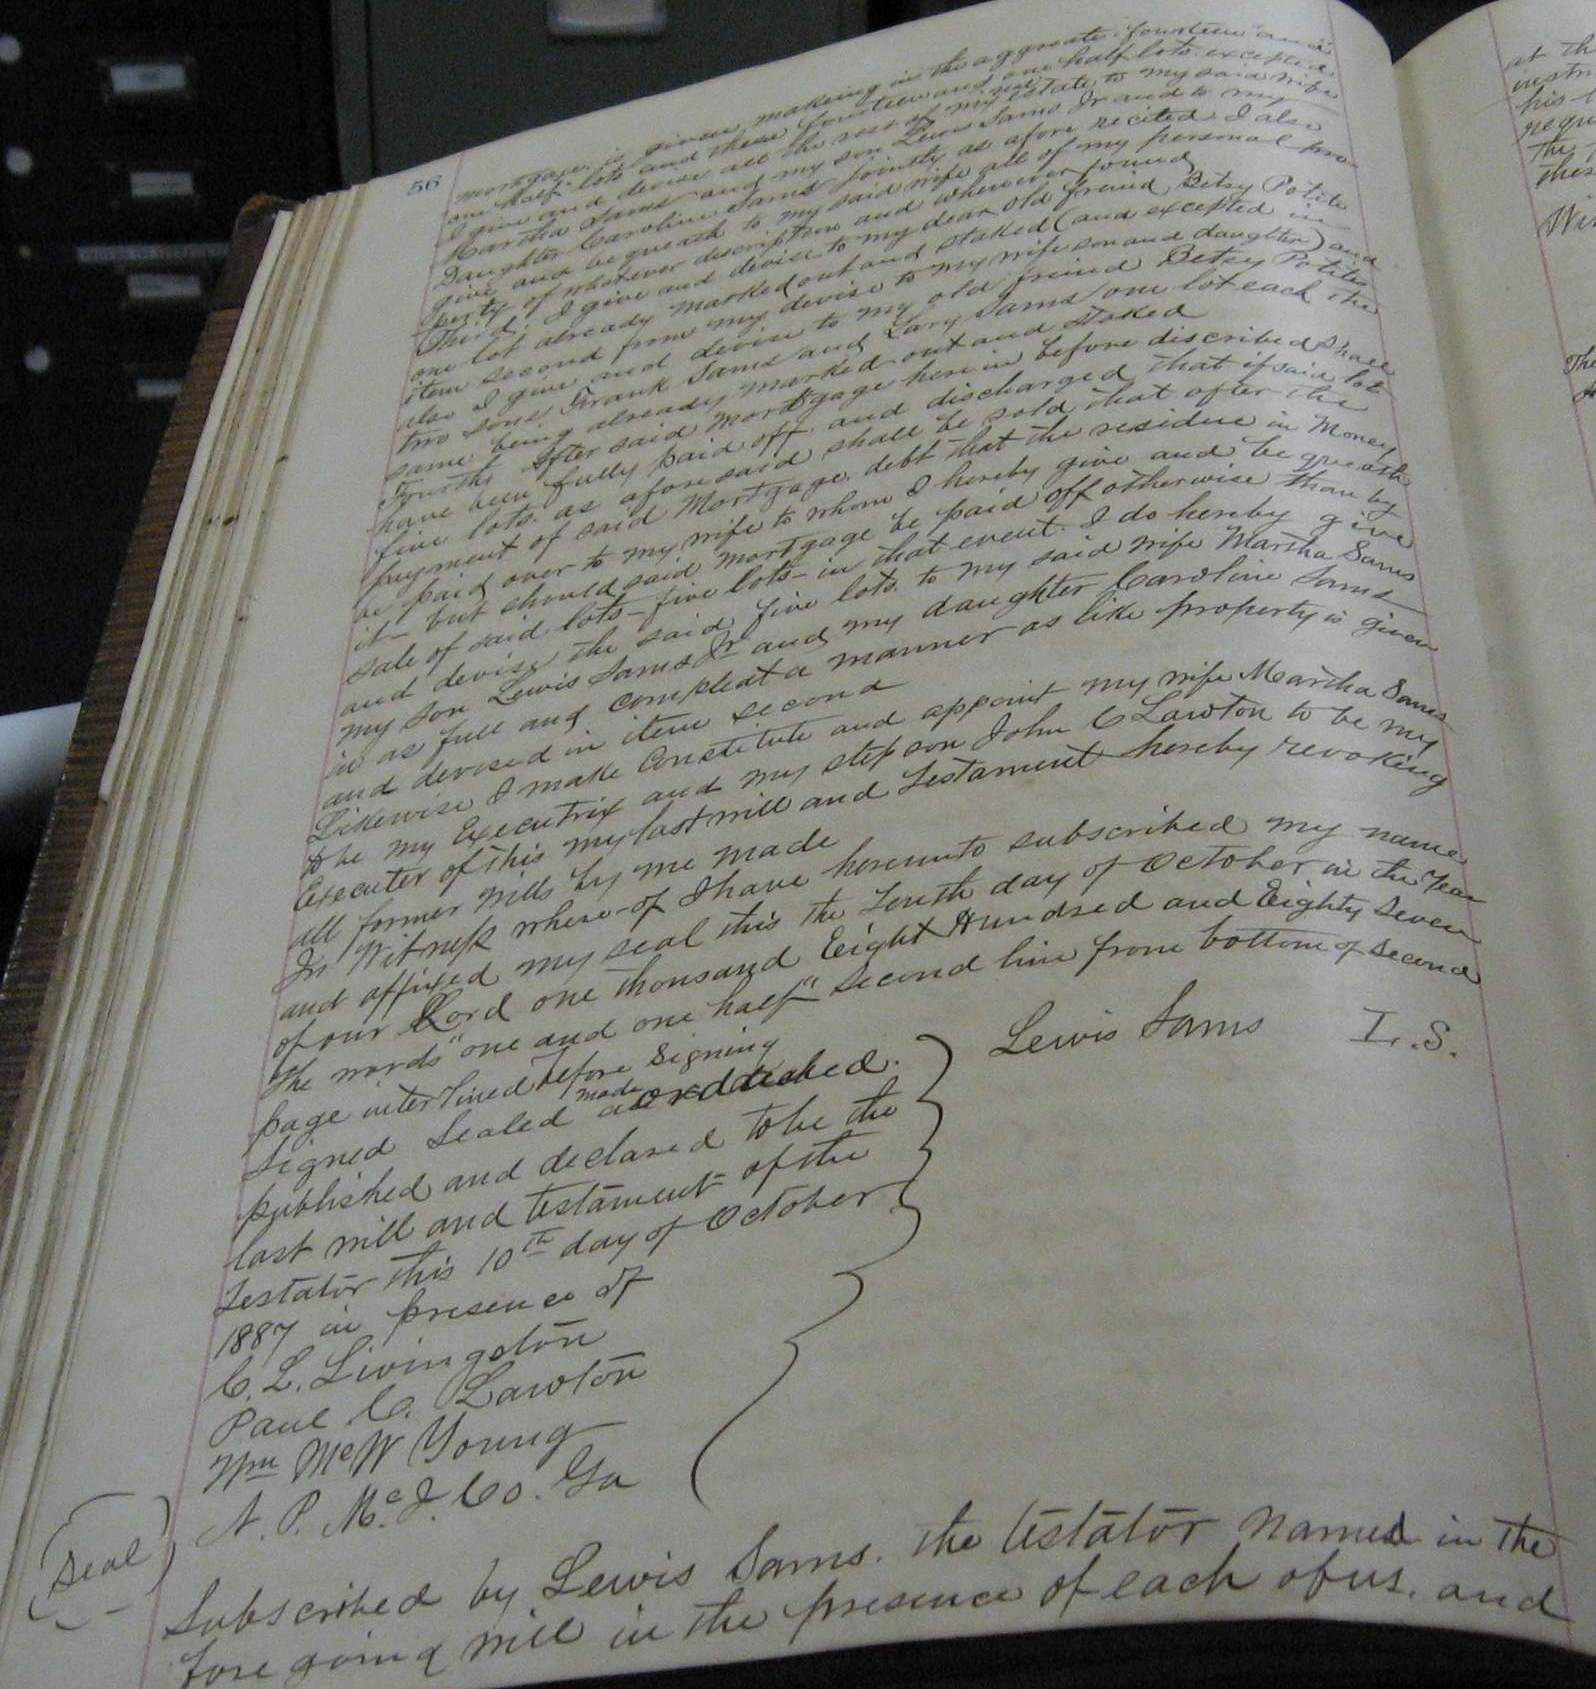 56
mortgage is given, makeing in the aggreate "fourteen and
one half" lots and these fourteen and one half lots excepted.
I give and devise all the rest of my real estate, to my said wife
Martha Sams and my son Lewis Sams Jr and to my
Daughter Caroline Sams Jointly as afore recited I also
give and bequeath to my said wife all of my personal pro-
perty of whatever description and wherever found
Third, I give and devise to my dear old freind Betsy Potite
one lot already marked out and staked (and excepted in
item second from my devise to my wife son and daughter) and
also I give and devise to my old freind Betsey Potites
two sons Frank Sams and Lary Sams one lot each the
same being already marked out and staked
Fourth, After said Mortgage here in before discribed shall
have been fully paid off and discharged that if said lot
five lots as aforesaid shall be sold that after the
payment of said Mortgage debt that the residue in Money
be paid over to my wife to whom I hereby give and bequeath
it - but should said mortgage be paid off otherwise than by
sale of said lots - five lots - in that event I do hereby give
and devise the said five lots to my said wife Martha Sams
my son Lewis Sams Jr and my daughter Caroline Sams
in as full and compleat a manner as like property is given
and devised in item second
Likewise I make Constitute and appoint my wife Martha Sams
to be my Executrix and my step son John C Lawton to be my
Executer of this my last will and Testament hereby revoking
all former wills by me made
In Witness where-of I have hereunto subscribed my name
and affixed my seal this the Tenth day of October in the Year
of our Lord one thousand Eight Hundred and Eighty Seven
The words "one and one half" second line from bottom of second
page interlined before signing
Lewis Sams L.S.
Signed Sealed made
published and declared to be the
last will and testament of the
Testator this 10th day of October
1887 in presence of
C. L. Livingston
Paul C. Lawton
Wm McW Young
N. P. Mc.I. Co. Ga
(Seal)
Subscribed by Lewis Sams. the testator named in the
fore going will in the presence of each of us. and
at th
his
requ
the
thes
Wi
The